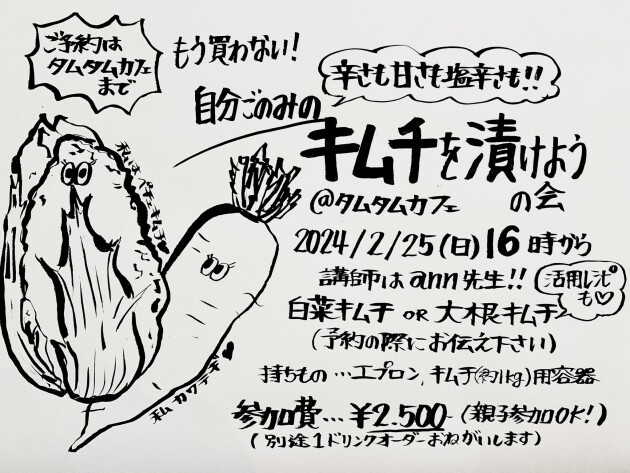 ご予約は
タムタムカフェ
まで
もう買わない!
辛さも甘さも塩辛さも!!
自分ごのみの
キムチを漬けよう
の会
@タムタムカフェ
2024/2/25(日)16時から
講師はann先生!!
活用レシピ
も♡
白菜キムチ OR 大根キムチ
(予約の際にお伝え下さい)
持ちもの…エプロン、キムチ(約1kg)用容器
私カワイイ
参加費…¥2.500-(親子参加OK!)
(別途1ドリンクオーダーおねがいします)